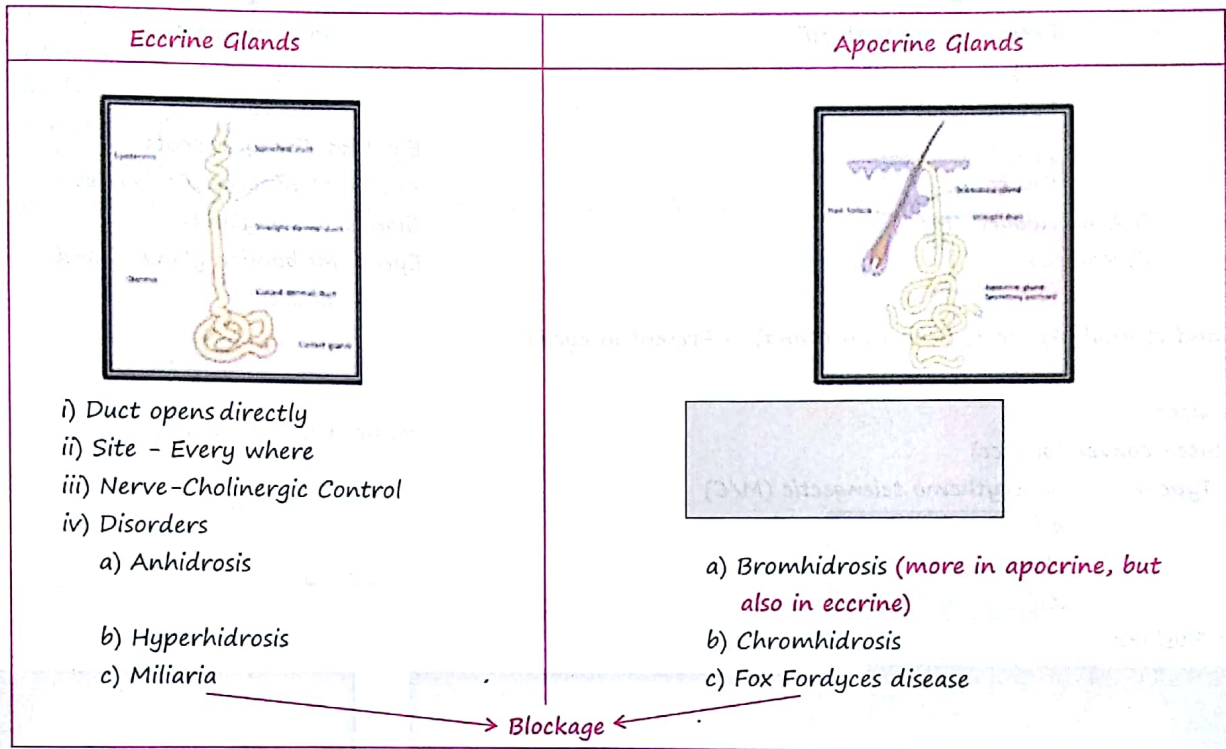 Eccrine Glands
Apocrine Glands
Epidermis
Spiraled duct
Straight dermal duct
Dermis
Coiled dermal duct
Coiled gland
Sebaceous gland
Hair follicle
Straight duct
Apocrine gland
Secreting portion
i) Duct opens directly
ii) Site - Every where
iii) Nerve-Cholinergic Control
iv) Disorders
a) Anhidrosis
b) Hyperhidrosis
c) Miliaria
a) Bromhidrosis (more in apocrine, but
also in eccrine)
b) Chromhidrosis
c) Fox Fordyces disease
Blockage